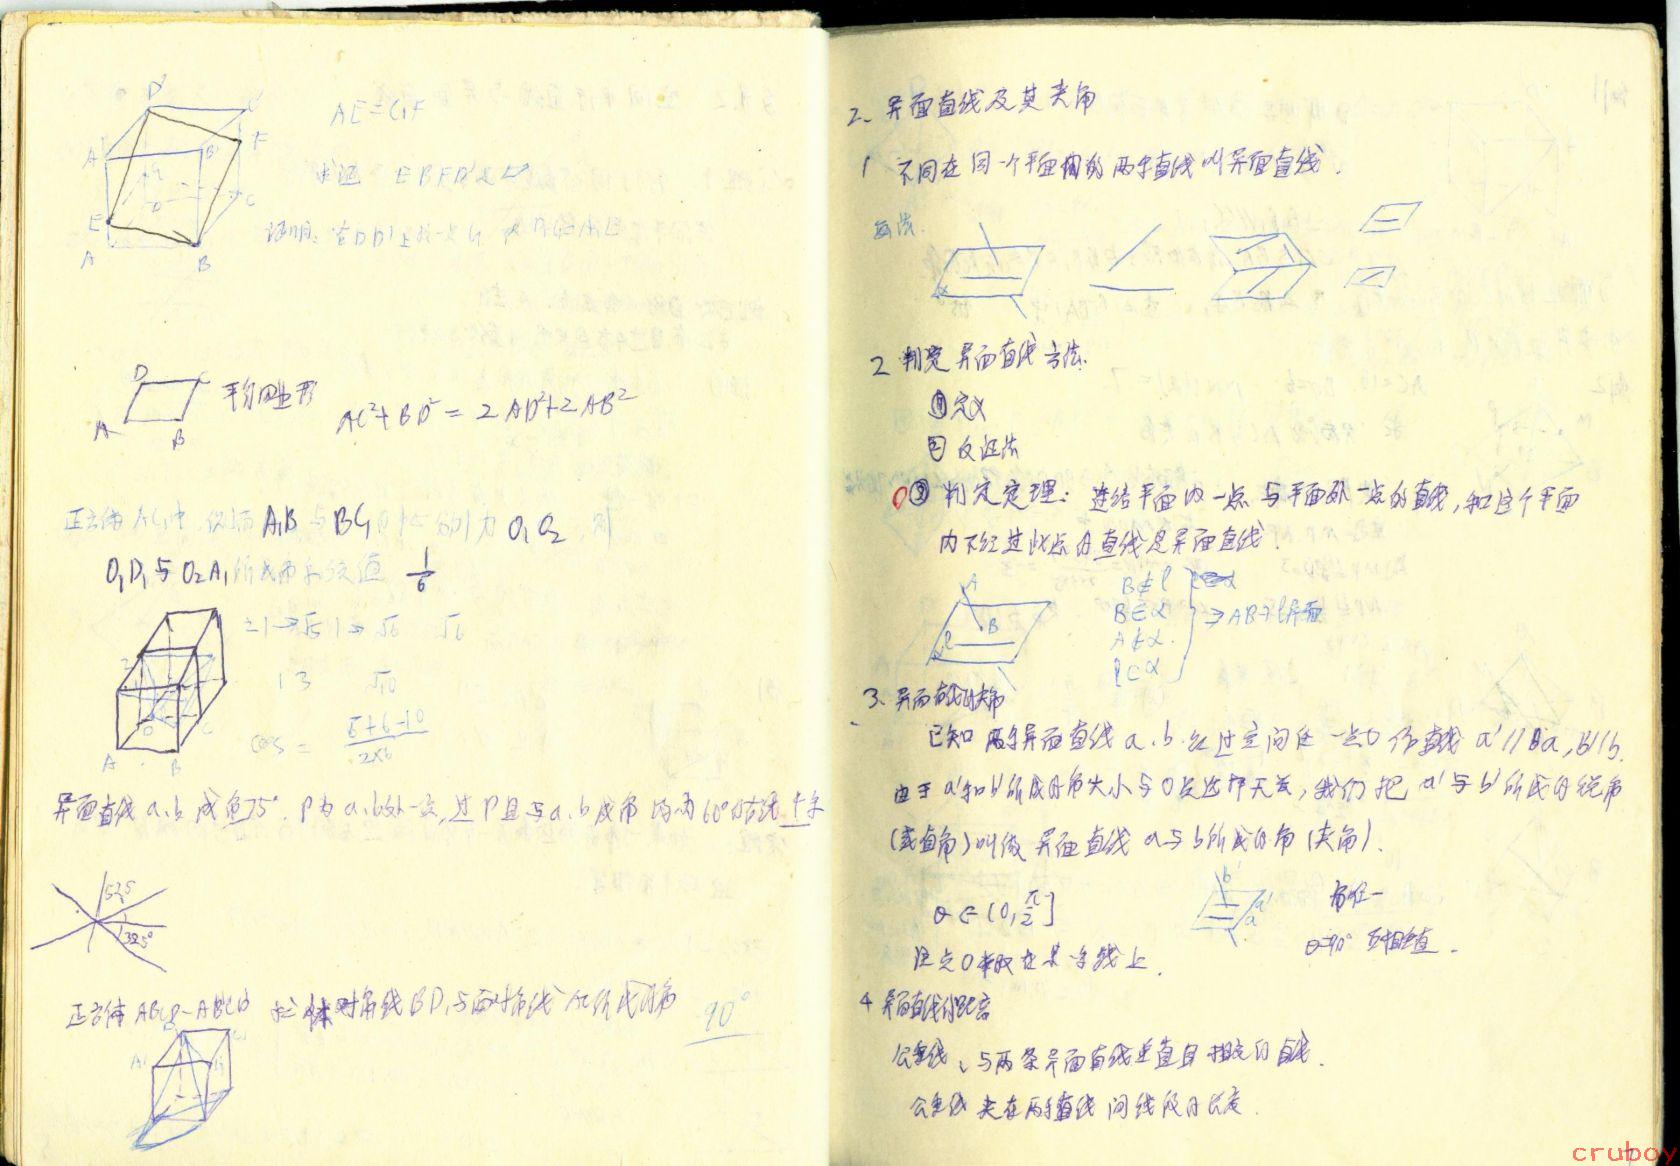 D' C'
A' B' F
E D C
A B
AE=C₁F
求证 EBFD'是▱
证明: 在DD'上取一点G 使
D C
A B
平行四边形
AC²+BD²=2AD²+2AB²
正方体AC₁中, 侧面A₁B与BC₁的中心分别为O₁O₂, 则
O₁D₁与O₂A₁所成角的余弦值 1/6
1 3 √10
A B
cos =
异面直线a,b成角75°. P为a,b外一点, 过P且与a,b成角均为60°的直线 条
52.5
正方体ABCD-A'B'C'D' 体对角线BD₁与面对角线AC所成的角 90°
2、异面直线及其夹角
1 不同在同一个平面内的两条直线叫异面直线.
画法.
α
2 判定异面直线方法.
①定义
②反证法
③判定定理: 连结平面内一点与平面外一点的直线, 和这个平面
内不经过此点的直线是异面直线.
A
B
l
α
B∉l
B∈α
A∉α
l⊂α
⇒AB与l异面
3、异面直线的夹角
已知两条异面直线a、b 经过空间任一点O作直线a'//a, b'//b.
由于a'和b'所成的角大小与O点选择无关, 我们把a'与b'所成的锐角
(或直角)叫做异面直线a与b所成的角(夹角).
θ∈(0,π/2]
b
a'
a
θ=90° 互相垂直.
注点O常取在某一条线上.
4 异面直线的距离
公垂线、与两条异面直线垂直且相交的直线.
公垂线夹在两条直线间线段的长度.
cruboy